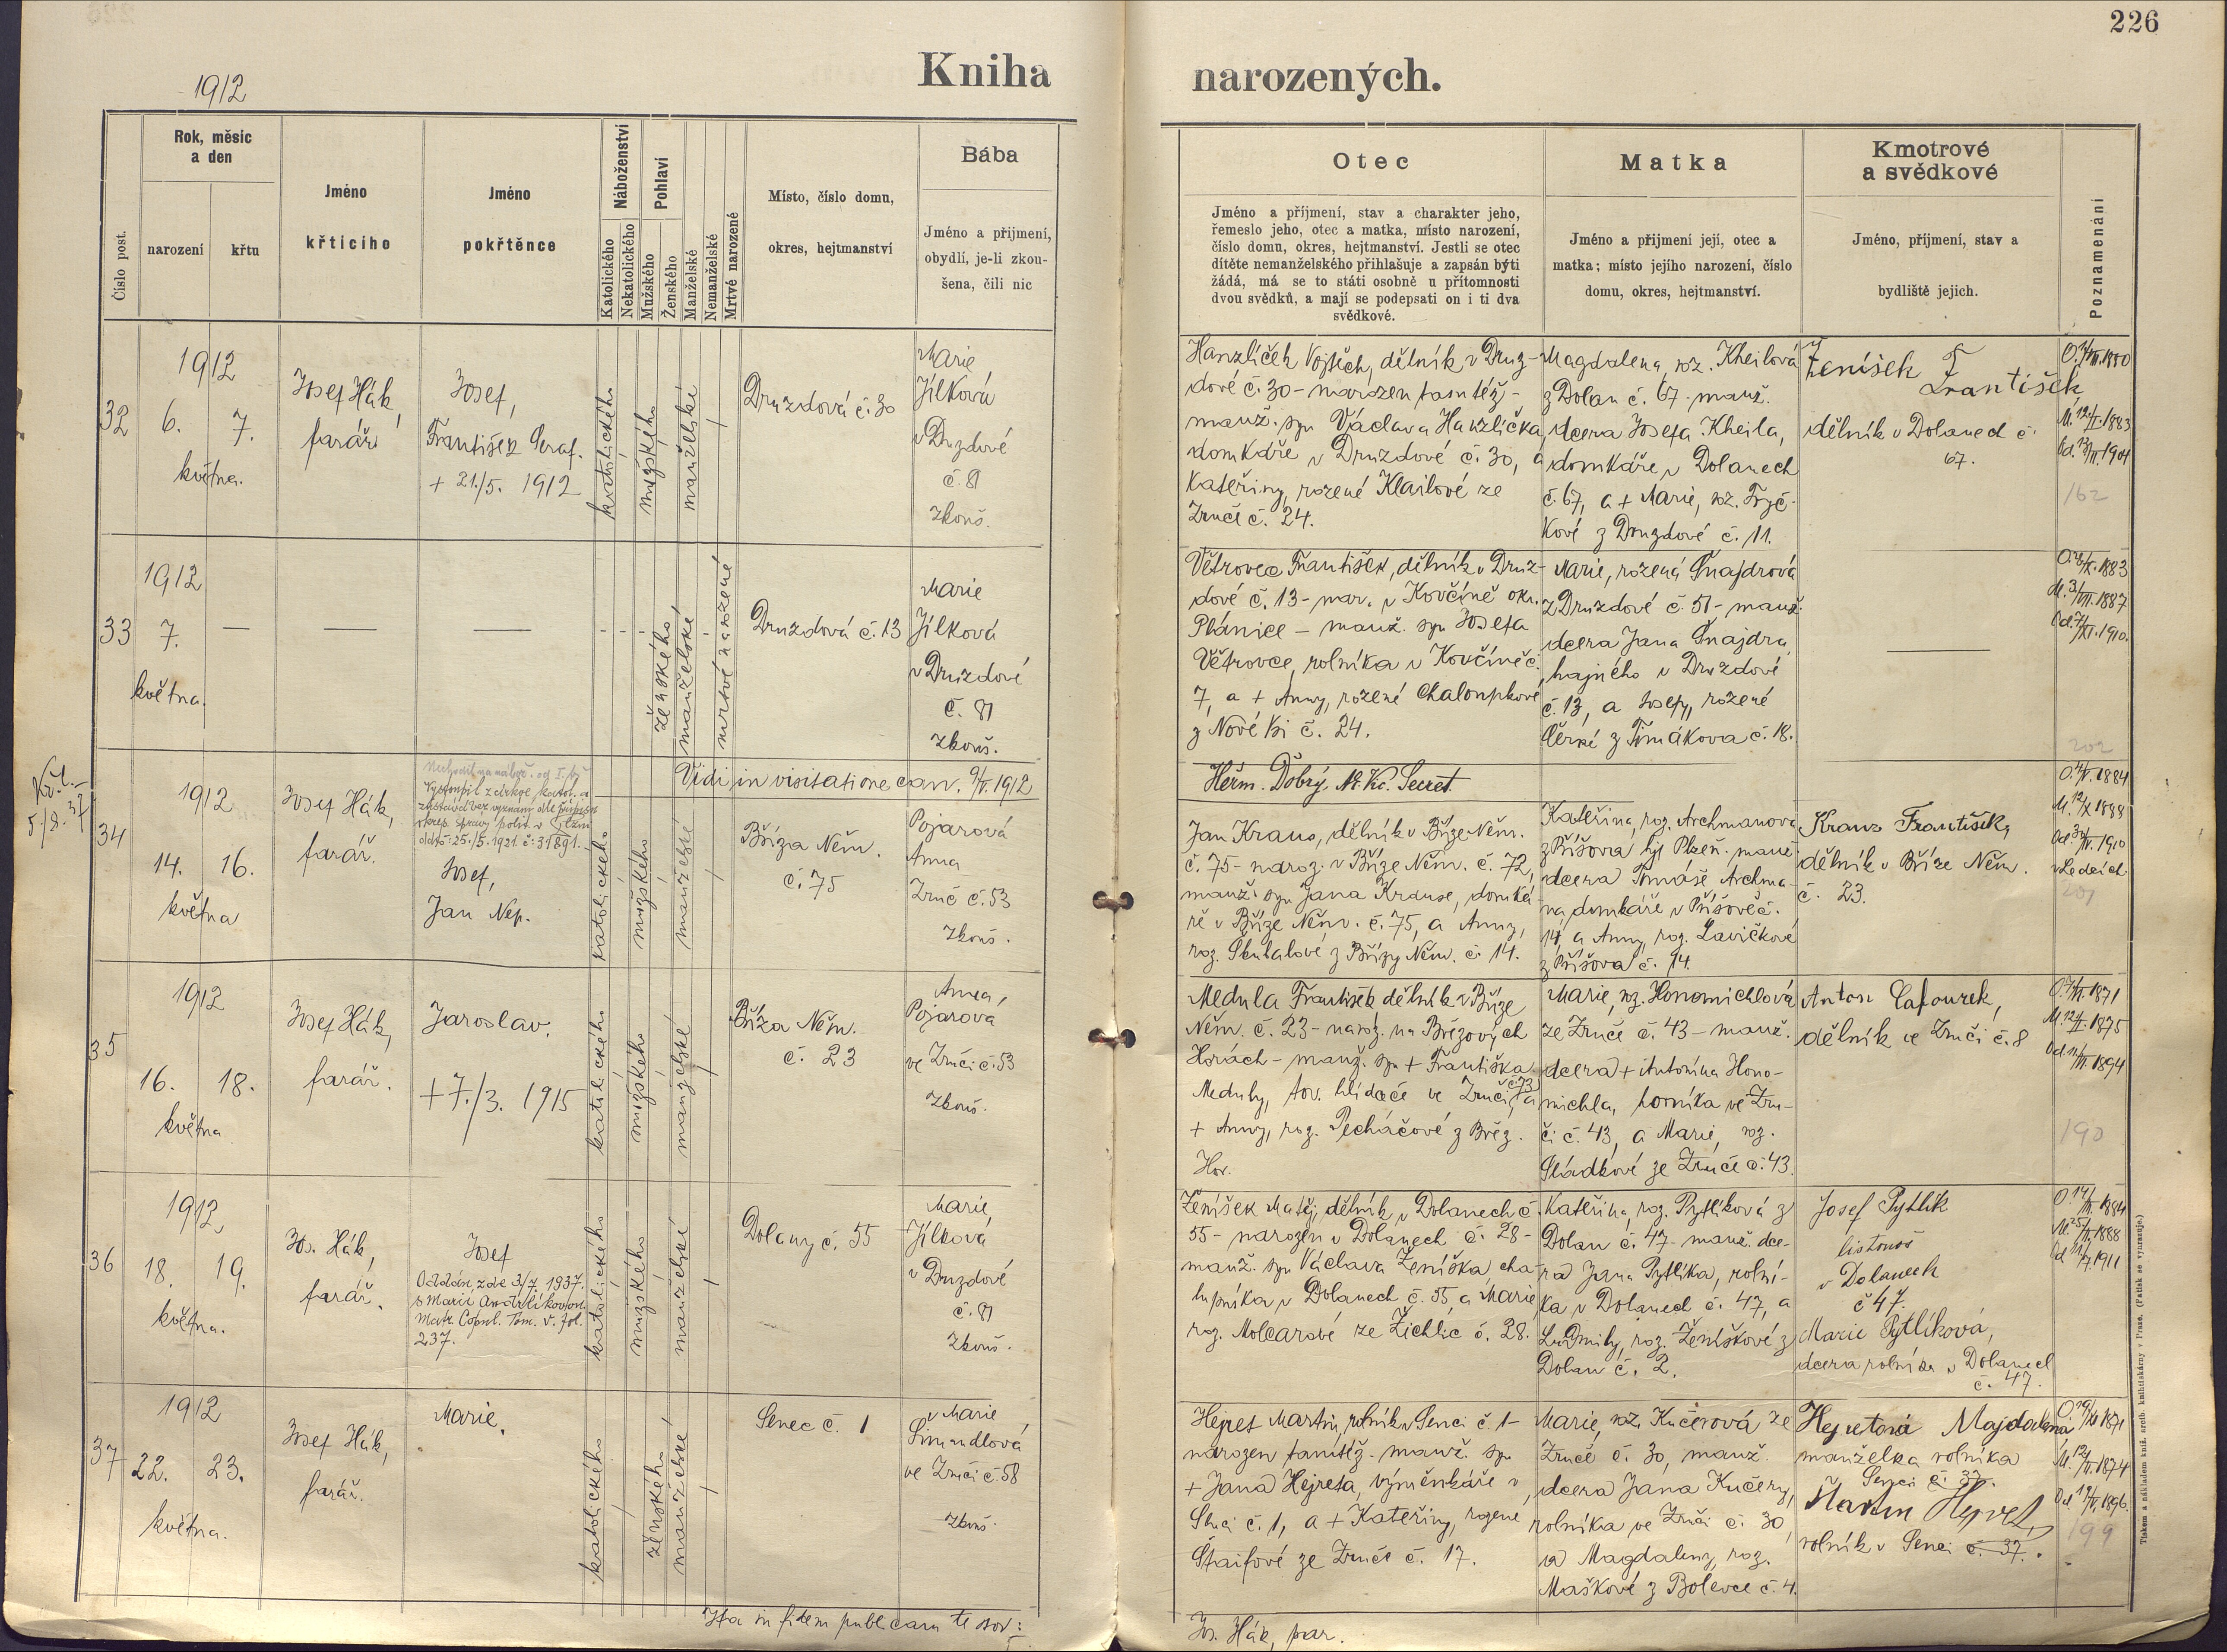 226
1912
Kniha narozených.
Číslo post.
Rok, měsíc
a den
narození
křtu
Jméno
křticího
Jméno
pokřtěnce
Náboženství
Katolického
Nekatolického
Pohlaví
Mužského
Ženského
Manželské
Nemanželské
Mrtvě narozené
Místo, číslo domu,
okres, hejtmanství
Bába
Jméno a přijmení,
obydlí, je-li zkou-
šena, čili nic
Otec
Jméno a příjmení, stav a charakter jeho,
řemeslo jeho, otec a matka, místo narození,
číslo domu, okres, hejtmanství. Jestli se otec
dítěte nemanželského přihlašuje a zapsán býti
žádá, má se to státi osobně u přítomnosti
dvou svědků, a mají se podepsati on i ti dva
svědkové.
Matka
Jméno a přijmení její, otec a
matka; místo jejího narození, číslo
domu, okres, hejtmanství.
Kmotrové
a svědkové
Jméno, příjmení, stav a
bydliště jejich.
Poznamenání
32
1912
6. 7.
května.
Josef Hák,
farář
Josef,
František Seraf.
+ 21./5. 1912
katolického
mužského
manželské
Druzdová č. 30
Marie
Jílková
v Druzdové
č. 81
zkouš.
Hanzlíček Vojtěch, dělník v Druz-
dové č. 30 - narozen tamtéž -
manž. syn Václava Hanzlíčka,
domkáře v Druzdové č. 30, a
Kateřiny, rozené Klailové ze
Zruče č. 24.
Magdalena, roz. Kheilová
z Dolan č. 67 - manž.
dcera Josefa Kheila,
domkáře v Dolanech
č. 67, a + Marie, roz. Fryč-
kové z Druzdové č. 11.
Ženíšek
František
dělník v Dolanech č.
67.
162
33
1912
7.
května.
ženského
manželské
mrtvě narozené
Druzdová č. 13
Marie
Jílková
v Druzdové
č. 81
zkouš.
Větrovec František, dělník v Druz-
dové č. 13 - nar. v Kovčíně okr.
Plánice - manž. syn Josefa
Větrovce, rolníka v Kovčíně č.
7, a + Anny, rozené Chaloupkové
z Nové Vsi č. 24.
Marie, rozená Šnajdrová
z Druzdové č. 51 - manž.
dcera Jana Šnajdra,
hajného v Druzdové
č. 13, a Josefy, rozené
z Tymákova č. 18.
202
Vidi in visitatione can. 9/V. 1912
Heřm. Dobrý, Secret.
Kř. l.
5./8. 37
34
1912
14. 16.
května
Josef Hák,
farář.
Vystoupil z církve katol. a
zůstává bez vyznání dle přípisu
okres. správy polit. v Plzni
ddto 25./5. 1921. č. 31891.
Josef,
Jan Nep.
katolického
mužského
manželské
Bříza Něm.
č. 75
Pojarová
Anna
Zruč č. 53
zkouš.
Jan Kraus, dělník v Bříze Něm.
č. 75 - naroz. v Bříze Něm. č. 72,
manž. syn Jana Krause, domká-
ře v Bříze Něm. č. 75, a Anny,
roz. Škubalové z Břízy Něm. č. 14.
Kateřina, roz. Archmanová
z Příšova hejt. Plzeň. manž.
dcera Tomáše Archma-
na, domkáře v Příšově č.
14, a Anny, roz. Lavičkové
z Příšova č. 14.
Kraus František,
dělník v Bříze Něm.
č. 23.
v Ledcích
201
35
1912
16. 18.
května
Josef Hák,
farář.
Jaroslav.
+ 7./3. 1915
katolického
mužského
manželské
Bříza Něm.
č. 23
Anna,
Pojarová
ve Zruči č. 53
zkouš.
Medula František dělník v Bříze
Něm. č. 23 - naroz. na Březových
Horách - manž. syn + Františka
Meduly, tov. hlídače ve Zruči č. 73, a
+ Anny, roz. Pecháčové z Břez.
Hor.
Marie, roz. Honomichlová
ze Zruče č. 43 - manž.
dcera + Antonína Hono-
michla, horníka ve Zru-
či č. 43, a Marie, roz.
Sládkové ze Zruče č. 43.
Anton Cafourek,
dělník ve Zruči č. 8
190
36
1912
18. 19.
května.
Jos. Hák,
farář.
Josef
Oddán zde 3/7 1937.
s Marií Andrlíkovou
Matr. Copul. Tom. V. fol.
237.
katolického
mužského
manželské
Dolany č. 55
Marie
Jílková
v Druzdové
č. 81
zkouš.
Ženíšek Matěj, dělník v Dolanech č.
55 - narozen v Dolanech č. 28 -
manž. syn Václava Ženíška, cha-
lupníka v Dolanech č. 55, a Marie
roz. Molcarové ze Žichlic č. 28.
Kateřina, roz. Pytlíková z
Dolan č. 47 - manž. dce-
ra Jana Pytlíka, rolní-
ka v Dolanech č. 47, a
Ludmily, roz. Ženíškové z
Dolan č. 2.
Josef Pytlík
listonoš
v Dolanech
č 47.
Marie Pytlíková,
dcera rolníka v Dolanech
č. 47.
37
1912
22. 23.
května.
Josef Hák,
farář.
Marie.
katolického
ženského
manželské
Senec č. 1
Marie
Šimandlová
ve Zruči č. 58
zkouš.
Hejret Martin, rolník v Senci č. 1 -
narozen tamtéž - manž. syn
+ Jana Hejreta, výměnkáře v
Senci č. 1, a + Kateřiny, rozené
Štaifové ze Zruče č. 17.
Marie, roz. Kučerová ze
Zruče č. 30, manž.
dcera Jana Kučery,
rolníka ve Zruči č. 30,
a Magdaleny, roz.
Maškové z Bolevce č. 4.
Hejretová Majdalena
manželka rolníka
Senci č. 37.
Martin Hejret,
rolník v Senci č. 37.
199
Ita in fidem publicam testor:
Jos. Hák, par.